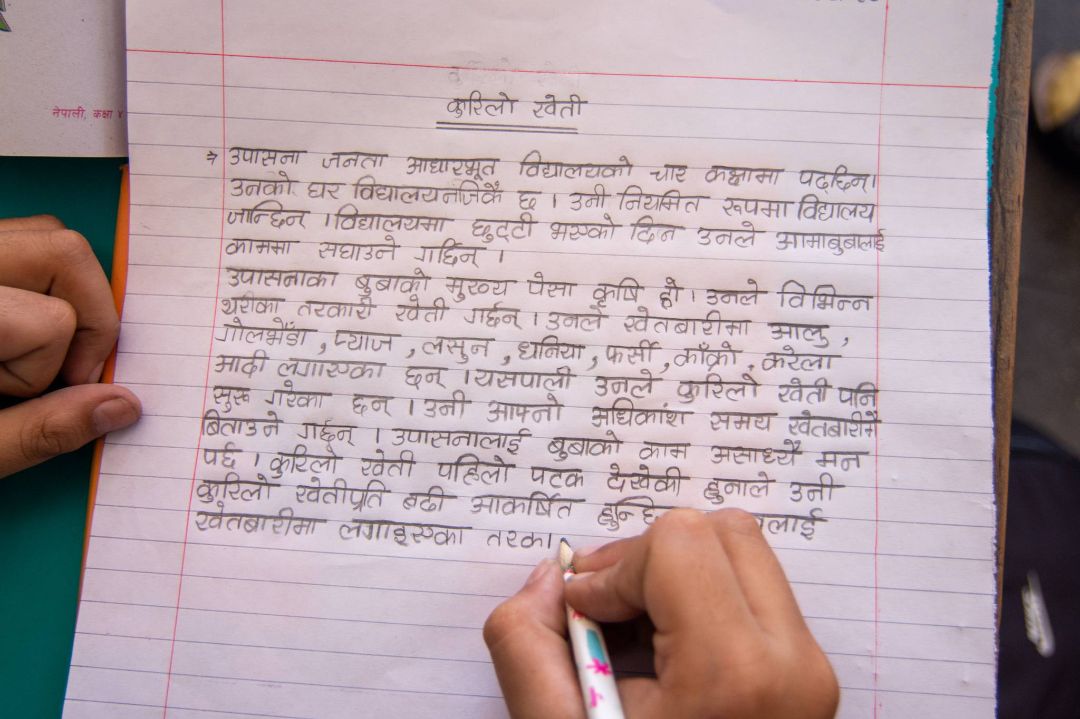 नेपाली, कक्षा ४
कुरिलो खेती
⇒ उपासना जनता आधारभूत विद्यालयको चार कक्षामा पढ्छिन्।
उनको घर विद्यालयनजिकै छ । उनी नियमित रूपमा विद्यालय
जान्छिन् । विद्यालयमा छुट्टी भएको दिन उनले आमाबुबालाई
काममा सघाउने गर्छिन् ।
उपासनाका बुबाको मुख्य पेसा कृषि हो । उनले विभिन्न
थरीका तरकारी खेती गर्छन् । उनले खेतबारीमा आलु,
गोलभेँडा, प्याज, लसुन, धनिया, फर्सी, काँक्रो, करेला
आदी लगाएका छन् । यसपाली उनले कुरिलो खेती पनि
सुरू गरेका छन् । उनी आफ्नो अधिकांश समय खेतबारीमै
बिताउने गर्छन् । उपासनालाई बुबाको काम असाध्यै मन
पर्छ । कुरिलो खेती पहिलो पटक देखेकी हुनाले उनी
कुरिलो खेतीप्रति बढी आकर्षित
खेतबारीमा लगाइएका तरका